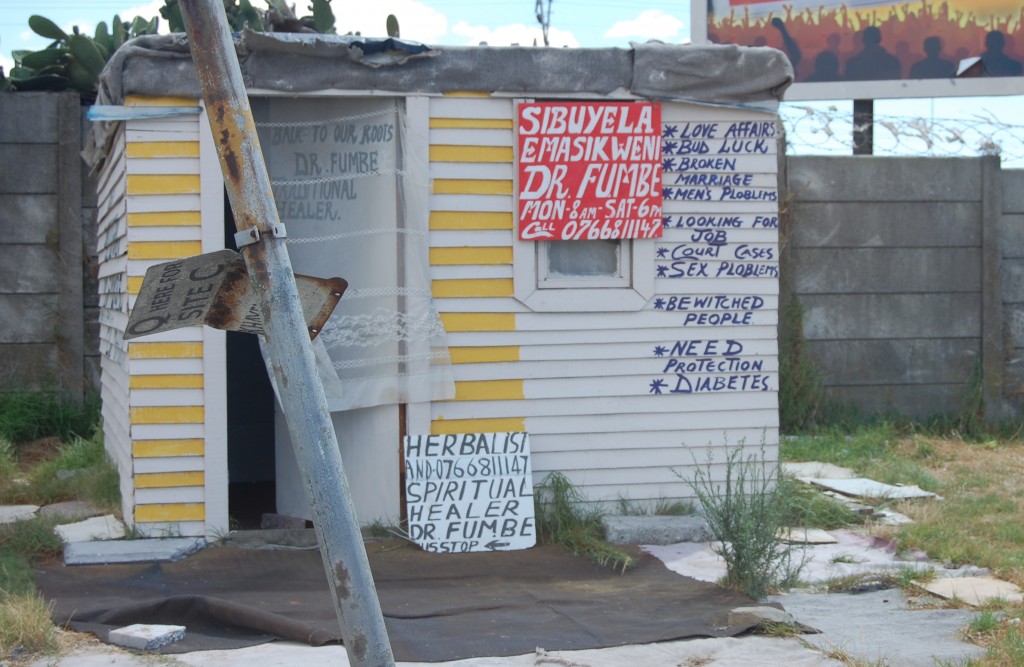 BACK TO OUR ROOTS
DR. FUMBE
TRADITIONAL
HEALER.
SIBUYELA
EMASIKWENI
DR. FUMBE
MON-8AM-SAT-6PM
CALL 0766811147.
* LOVE AFFAIRS
* BUD LUCK
* BROKEN
MARRIAGE
* MEN'S PLOBLIMS
* LOOKING FOR
JOB
* COURT CASES
* SEX PLOBLEMS
* BEWITCHED
PEOPLE.
* NEED
PROTECTION
* DIABETES.
Q HERE FOR
SITE C
HERBALIST
AND-0766811147
SPIRITUAL
HEALER
DR. FUMBE
STOP ←